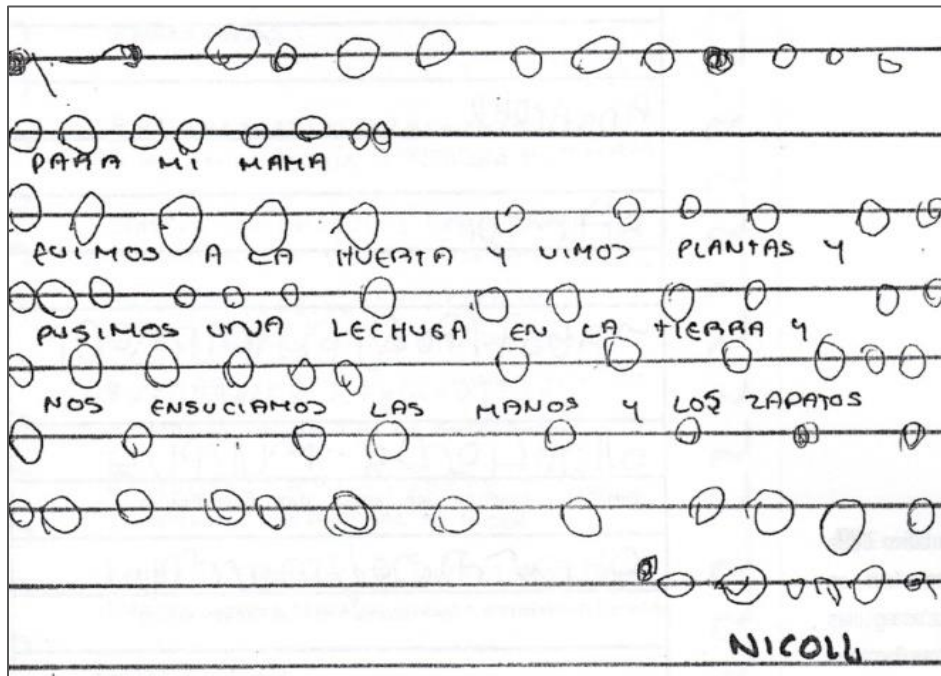 PARA MI MAMA
FUIMOS A LA HUERTA Y VIMOS PLANTAS Y
PUSIMOS UNA LECHUGA EN LA TIERRA Y
NOS ENSUCIAMOS LAS MANOS Y LOS ZAPATOS
NICOLL